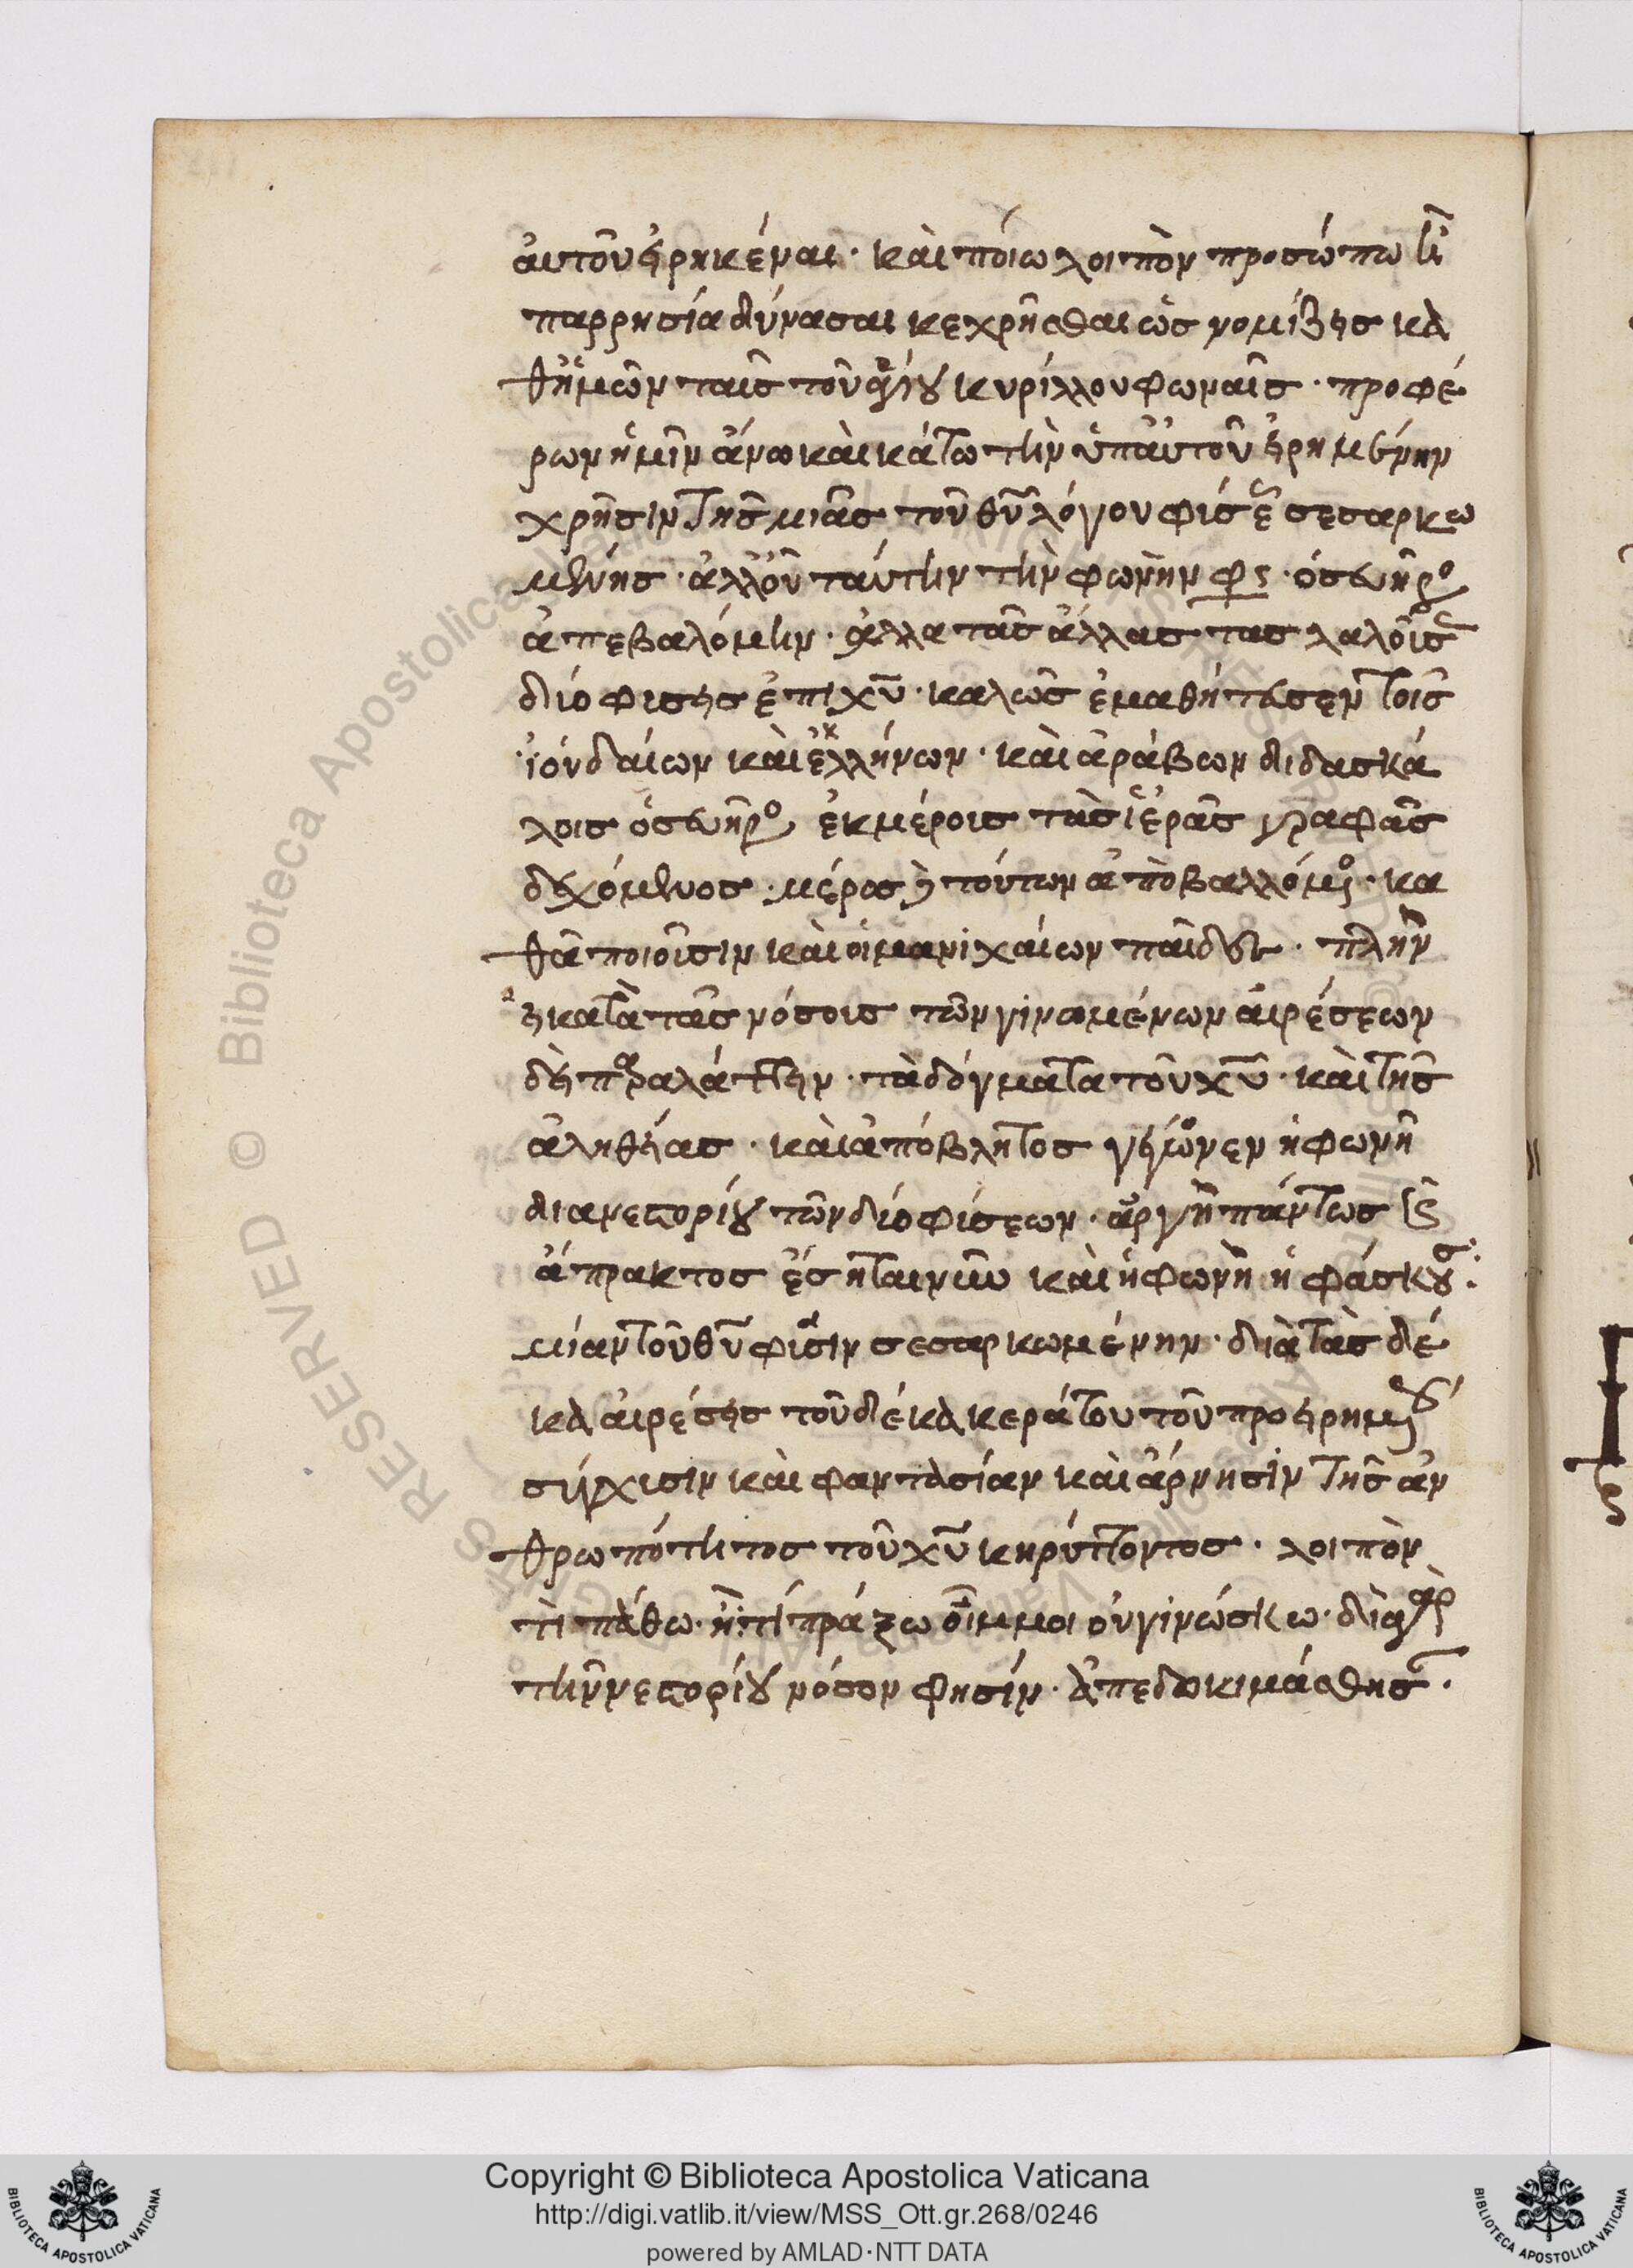 αὐτοῦ εἰρηκέναι · καὶ ποίω λοιπὸν προσώπω ἢ
παρρησία δύνασαι κεχρῆσθαι ὡς νομίζεις κα
θ ἡμῶν ταῖς τοῦ ἁγίου κυρίλλου φωναῖς · προφέ
ρων ἡμῖν ἄνω καὶ κάτω τὴν ὑπ αὐτοῦ εἰρημένην
χρῆσιν τῆς μιᾶς τοῦ θυ λόγου φύσεως σεσαρκω
μένης · ἀλλ οὐ ταύτην τὴν φωνὴν φς · ὁ σευῆρο
ἀπεβαλόμην · ἀλλα τὰς ἄλλας τας λαλούσας
δύο φύσεις ἐπι χυ · καλῶς ἐμαθήτευσεν τοῖς
ἰουδαίων καὶ ἑλλήνων · καὶ ἀράβων διδασκά
λοις ὁ σευῆρο ἐκ μέρους τὰς ἱερὰς γραφὰς
δεχόμενος · μέρος δὲ τούτων ἀποβαλλόμενος · κα
θα ποιοῦσιν καὶ οἱ μανιχαίων παῖδες · πλὴν
εἰ κατὰ τὰς νόσους τῶν γινομένων αἱρέσεων
δεῖ παραλάττειν · τὰ δόγματα τοῦ χυ · καὶ τῆς
ἀληθείας · καὶ ἀπόβλητος γέγονεν ἡ φωνὴ
δια νεστορίου τῶν δύο φύσεων · ἀργὴ πάντως καὶ
ἄπρακτος ἔσηται νῦν καὶ ἡ φωνὴ ἡ φάσκουσα
μίαν τοῦ θυ φύσιν σεσαρκωμένην · διὰ τὰς δέ
κα αἱρέσεις τοῦ δέκα κεράτου τοῦ προειρημένου
σύγχυσιν καὶ φαντασίαν καὶ ἄρνησιν τῆς ἀν
θρωπότητος τοῦ χυ κηρύττοντος · λοιπὸν
τὶ πάθω · ἢ τί πράξω οἴμμοι οὐ γινώσκω · διὰ γὰρ
τὴν νεστορίου νόσον φησίν · ἀπεδοκιμάσθησαν ·
Copyright © Biblioteca Apostolica Vaticana
http://digi.vatlib.it/view/MSS_Ott.gr.268/0246
powered by AMLAD·NTT DATA